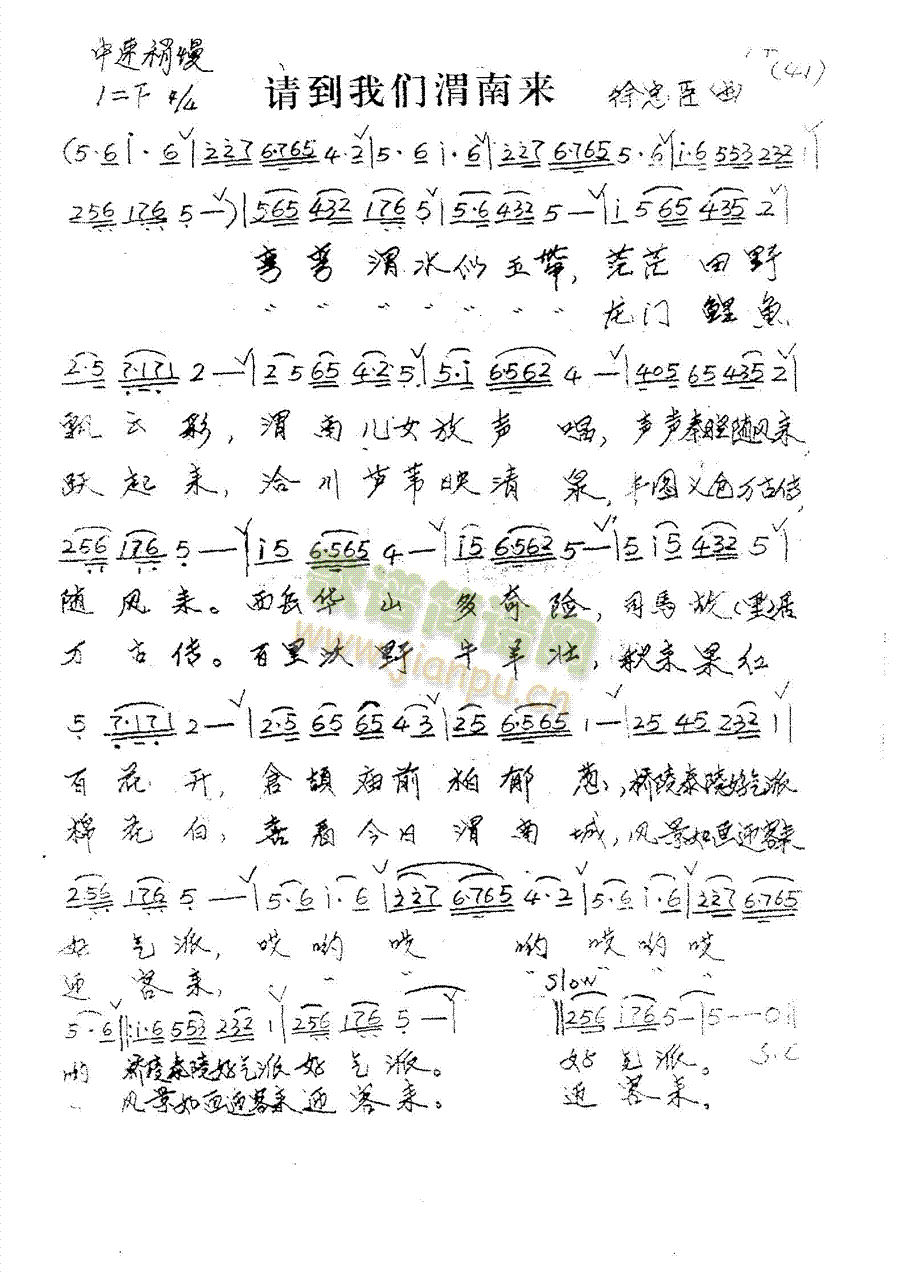 中速稍慢
1=F 4/4
请到我们渭南来
徐忠臣(曲)
(41)
(5·6 i·6 | 227 6·765 4·2 | 5·6 i·6 | 227 6·765 5·6 | i·6 553 232 1 |
256 176 5 —) | 565 432 176 5 | 5·6 432 5 — | i 565 435 2 |
弯弯渭水似玉带,茫茫田野
〃 〃 〃 〃 〃 〃 〃 龙门鲤鱼
2·5 7·171 2 — | 2 5 65 4·2 5 | 5·i 6·562 4 — | 405 65 435 2 |
飘云彩,渭南儿女放声唱,声声秦腔随风来
跃起来,洽川芦苇映清泉,丰图义仓万古传
256 176 5 — | i5 6·565 4 — | i5 6·562 5 — | 5 i5 432 5 |
随风来。西岳华山多奇险,司馬故(里)居
万古传。百里沃野牛羊壮,秋来果红
5 7·171 2 — | 2·5 65 65 43 | 25 6·565 1 — | 25 45 232 1 |
百花开,仓颉庙前柏郁葱,桥陵泰陵好气派
棉花白,喜看今日渭南城,风景如画迎客来
256 176 5 — | 5·6 i·6 | 227 6·765 4·2 | 5·6 i·6 | 227 6·765
好气派,哎哟哎哟哎哟哎
迎客来, 〃 〃 〃 〃 〃 〃
Slow
5·6 ‖: i·6 553 232 1 | 256 176 5 — | ‖ 256 176 5 — | 5 — — 0 ‖
哟 桥陵泰陵好气派好气派。 好气派。
〃 风景如画迎客来迎客来。 迎客来。
歌谱简谱网
www.jianpu.cn